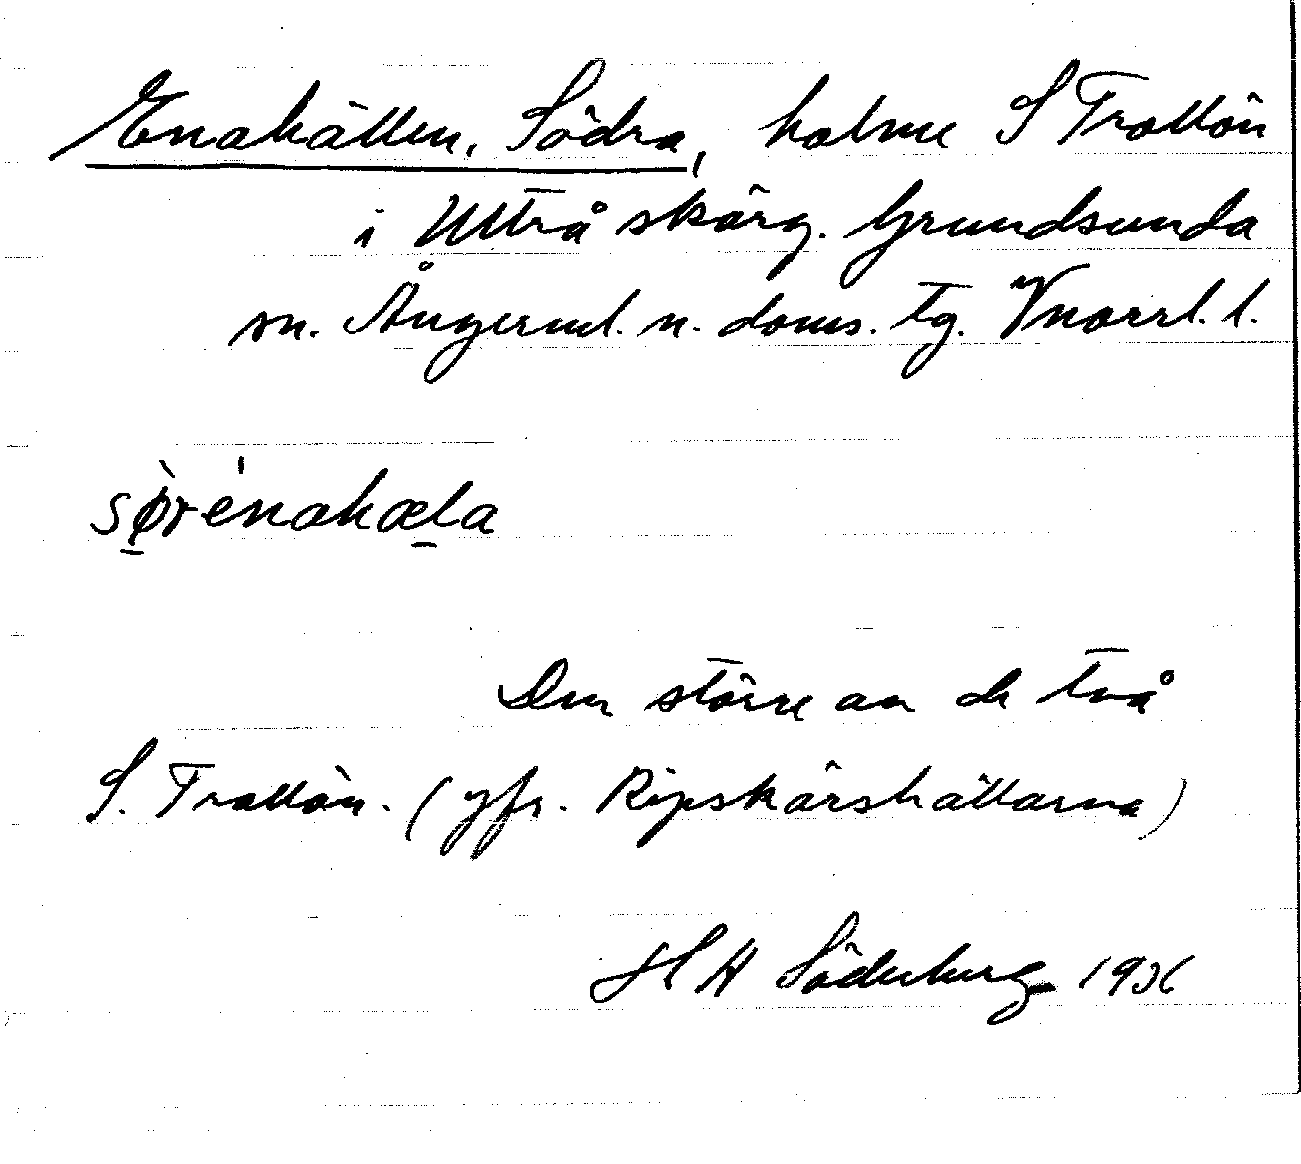 Enahällen, Södra, holme S Trollön
i Ulfrå skärg. Grundsunda
sn. Ångerml. n. doms. tg. Vnorrl. l.
sø̱̀rénahæ̱la
Den större av de två
S. Trollön. (jfr. Ripskärshällarna)
H A Söderberg 1936